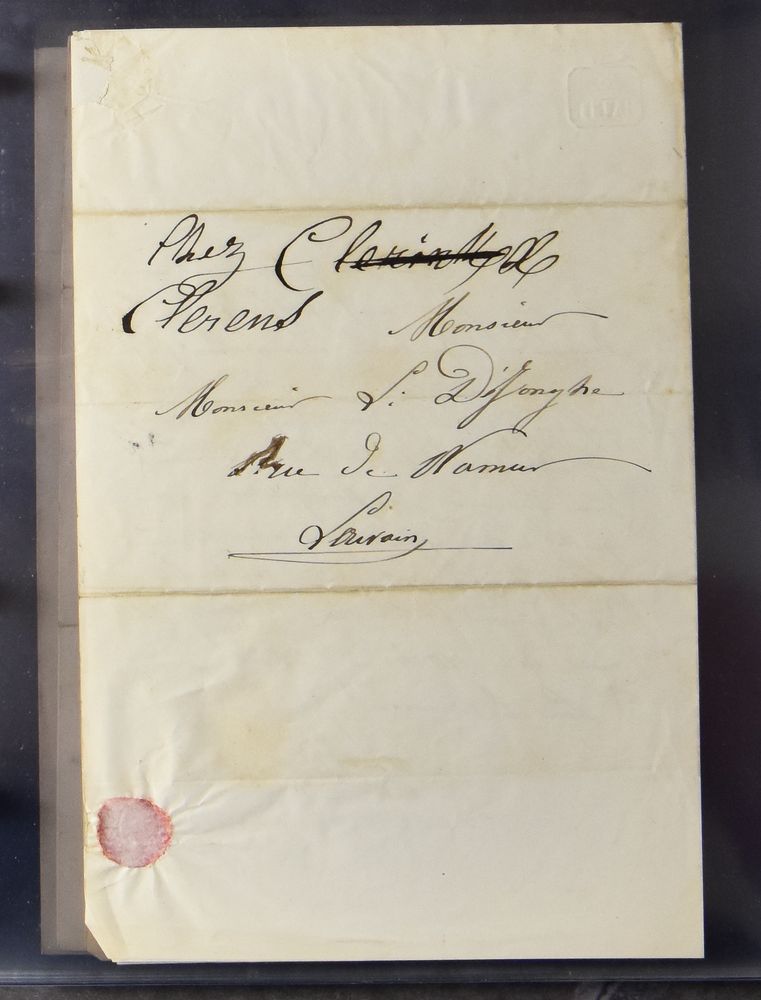 Chez
Clerens Monsieur
Monsieur L: DeJonghe
Rue De Namur
Louvain